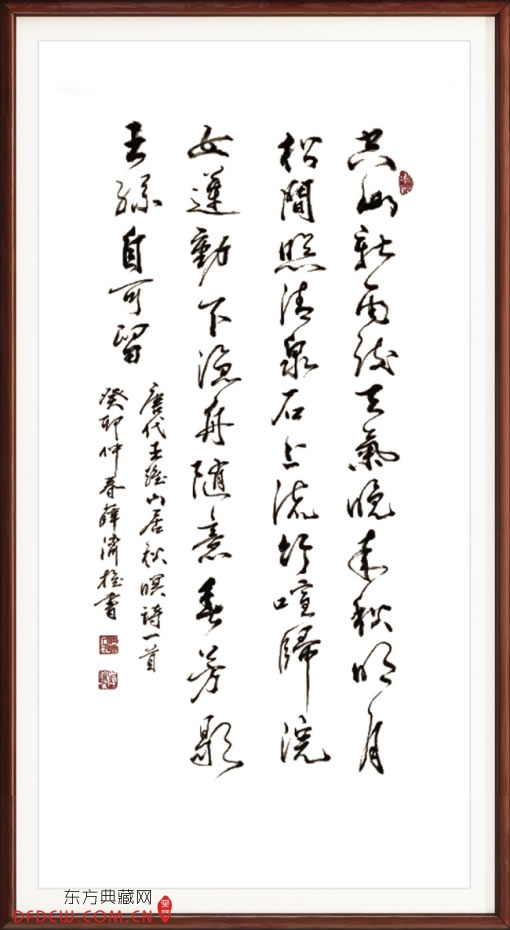 空山新雨後天氣晚来秋明月
松間照清泉石上流竹喧歸浣
女蓮動下漁舟随意春芳歇
王孫自可留
唐代王維山居秋暝詩一首
癸卯仲春薛濟書
东方典藏网
DFDCW.COM.CN